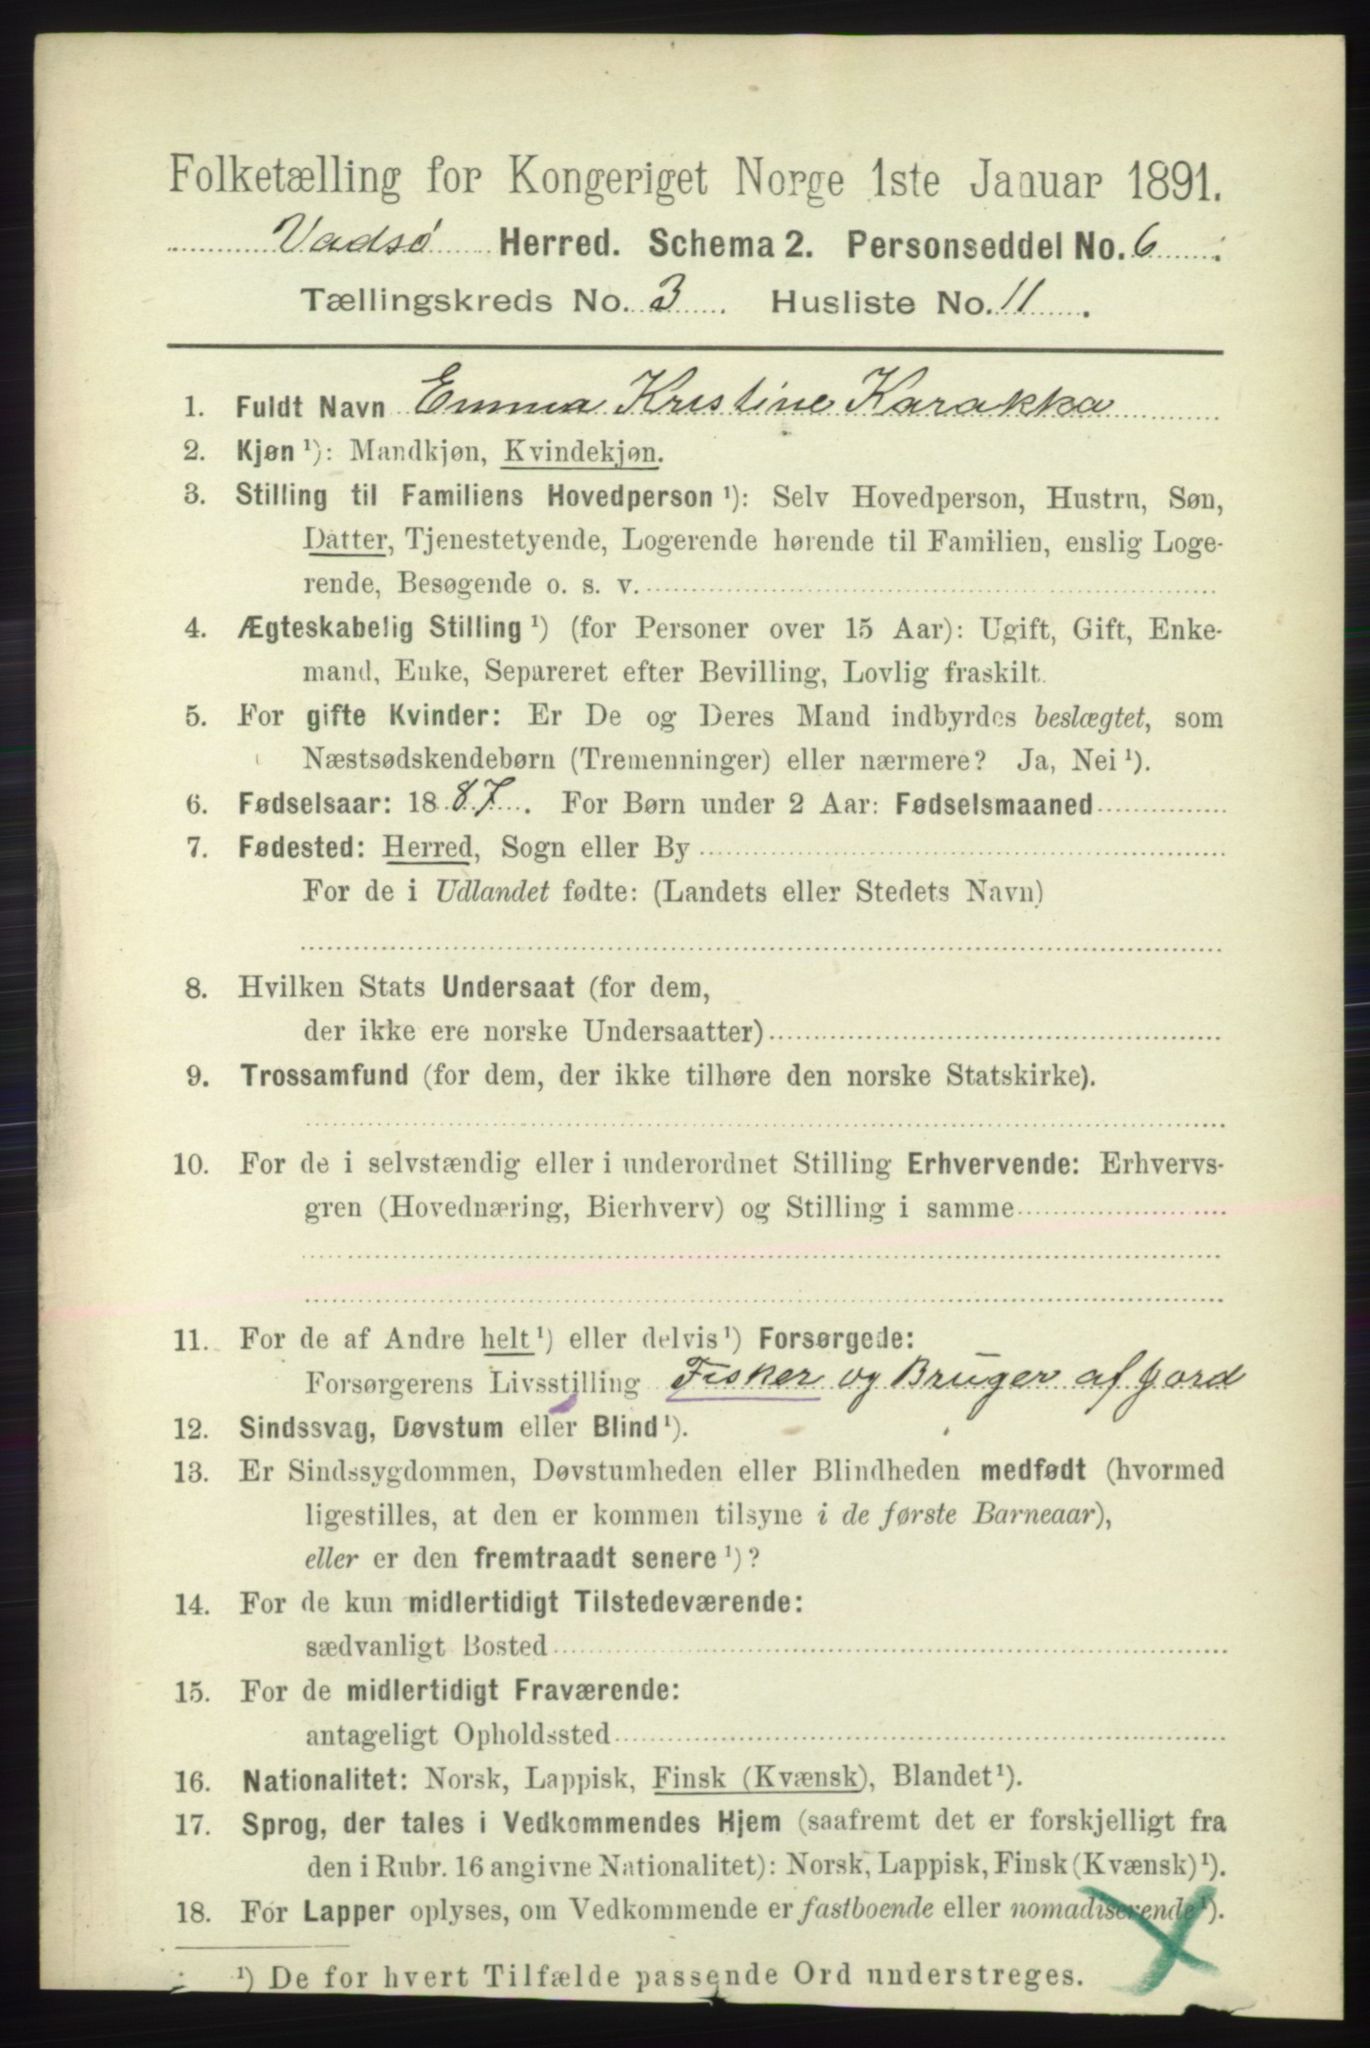 Folketælling for Kongeriget Norge 1ste Januar 1891.
Vadsø Herred. Schema 2. Personseddel No. 6.
Tællingskreds No. 3. Husliste No. 11.
1. Fuldt Navn Emma Kristine Karakka
2. Kjøn ¹): Mandkjøn, Kvindekjøn.
3. Stilling til Familiens Hovedperson ¹): Selv Hovedperson, Hustru, Søn,
Datter, Tjenestetyende, Logerende hørende til Familien, enslig Loge-
rende, Besøgende o. s. v.
4. Ægteskabelig Stilling ¹) (for Personer over 15 Aar): Ugift, Gift, Enke-
mand, Enke, Separeret efter Bevilling, Lovlig fraskilt.
5. For gifte Kvinder: Er De og Deres Mand indbyrdes beslægtet, som
Næstsødskendebørn (Tremenninger) eller nærmere? Ja, Nei ¹).
6. Fødselsaar: 1887. For Børn under 2 Aar: Fødselsmaaned
7. Fødested: Herred, Sogn eller By
For de i Udlandet fødte: (Landets eller Stedets Navn)
8. Hvilken Stats Undersaat (for dem,
der ikke ere norske Undersaatter)
9. Trossamfund (for dem, der ikke tilhøre den norske Statskirke).
10. For de i selvstændig eller i underordnet Stilling Erhvervende: Erhvervs-
gren (Hovednæring, Bierhverv) og Stilling i samme
11. For de af Andre helt ¹) eller delvis ¹) Forsørgede:
Forsørgerens Livsstilling Fisker og Bruger af Jord
12. Sindssvag, Døvstum eller Blind ¹).
13. Er Sindssygdommen, Døvstumheden eller Blindheden medfødt (hvormed
ligestilles, at den er kommen tilsyne i de første Barneaar),
eller er den fremtraadt senere ¹)?
14. For de kun midlertidigt Tilstedeværende:
sædvanligt Bosted
15. For de midlertidigt Fraværende:
antageligt Opholdssted
16. Nationalitet: Norsk, Lappisk, Finsk (Kvænsk), Blandet ¹).
17. Sprog, der tales i Vedkommendes Hjem (saafremt det er forskjelligt fra
den i Rubr. 16 angivne Nationalitet): Norsk, Lappisk, Finsk (Kvænsk) ¹).
18. For Lapper oplyses, om Vedkommende er fastboende eller nomadiserende ¹).
¹) De for hvert Tilfælde passende Ord understreges.